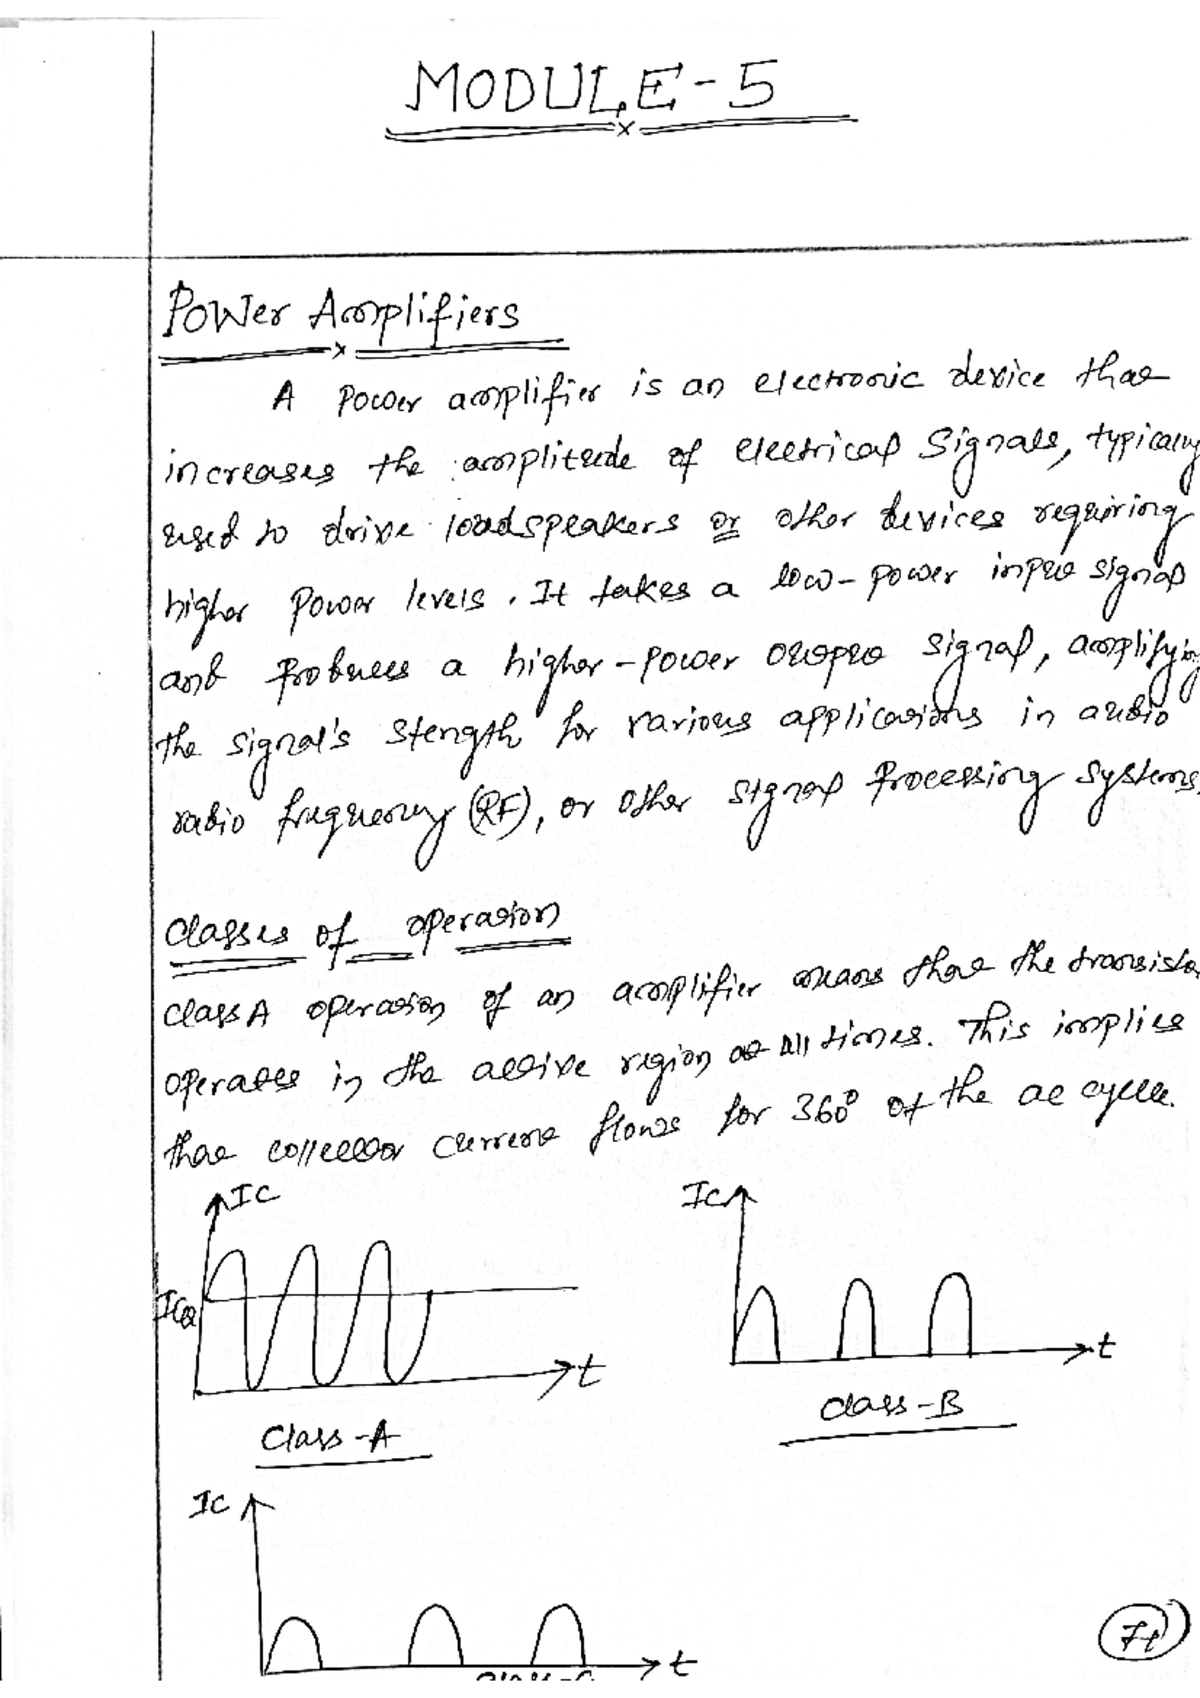 MODULE-5
Power Amplifiers
A Power amplifier is an electronic device that
increases the amplitude of electrical Signals, typically
used to drive loadspeakers or other devices requiring
higher Power levels. It takes a low-power input signal
and Produces a higher-power output signal, amplifying
the signal's stength for various applications in audio
radio frequency (RF), or other signal Processing systems.
Classes of operation
Class A operation of an amplifier means that the transistor
operates in the active region at All times. This implies
that collector current flows for 360° of the ac cycle.
IC
IC
ICQ
t
t
Class-A
Class-B
IC
t
Class-C